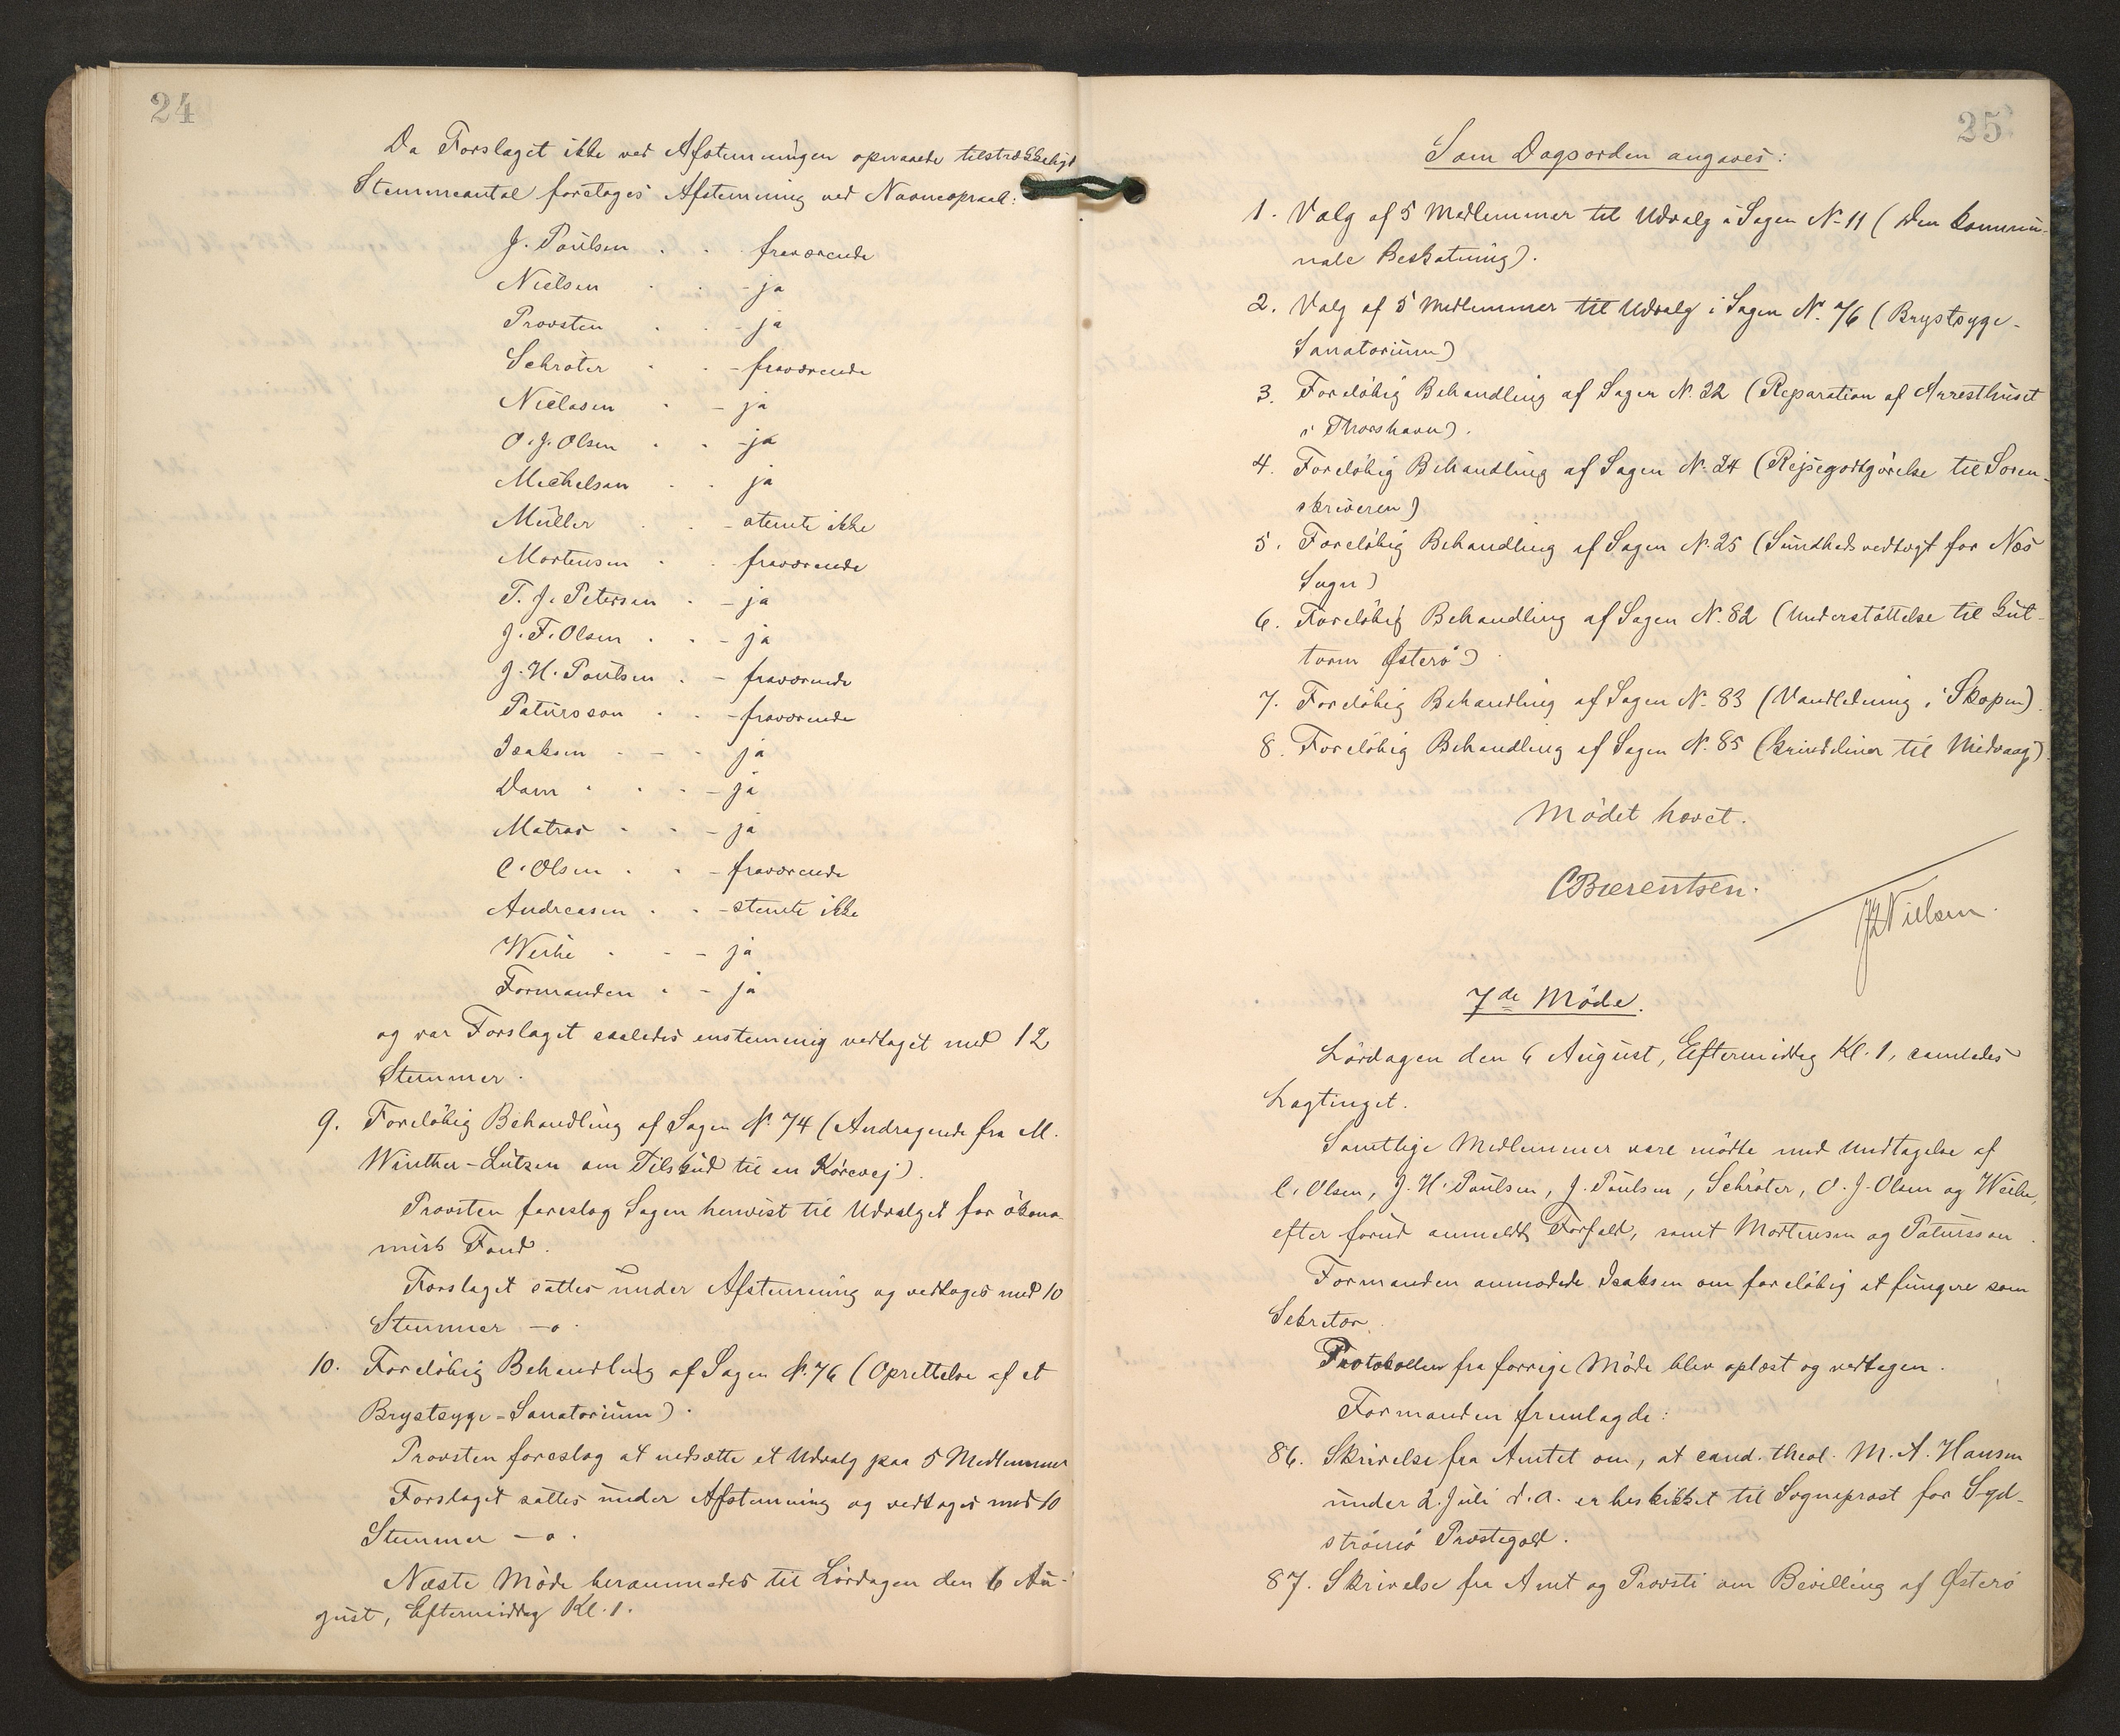 24
Da Forslaget ikke ved Afstemningen opnaaede tilstrækkeligt
Stemmeantal foretoges Afstemning ved Navneopraab:
J. Poulsen . . fraværende
Nielsen . . - ja
Provsten . . - ja
Schrøter . . - fraværende
Niclasen . - ja
O. J. Olsen . . - ja
Michelsen . . ja
Müller . . - stemte ikke
Mortensen . . fraværende
T. J. Petersen . - ja
J. F. Olsen . . - ja
J. H. Poulsen . - fraværende
Patursson . . - fraværende
Isaksen . - . ja
Dam . . . - ja
Matras . . - ja
C. Olsen . . - fraværende
Andreasen . . - stemte ikke
Weihe . - - ja
Formanden . - ja
og var Forslaget saaledes enstemmig vedtaget med 12
Stemmer.
9. Foreløbig Behandling af Sagen N. 74 (Andragende fra M.
Winther-Lützen om Tilskud til en Kørevej).
Provsten foreslog Sagen henvist til Udvalget for økono-
misk Fond.
Forslaget sattes under Afstemning og vedtoges med 10
Stemmer - o.
10. Foreløbig Behandling af Sagen N. 76 (Oprettelse af et
Brystsyge-Sanatorium).
Provsten foreslog at nedsætte et Udvalg paa 5 Medlemmer
Forslaget sattes under Afstemning og vedtoges med 10
Stemmer - o.
Næste Møde berammedes til Lørdagen den 6 Au-
gust, Eftermiddag Kl. 1.
25
Som Dagsorden angaves:
1. Valg af 5 Medlemmer til Udvalg i Sagen N. 11 (Den kommu-
nale Beskatning).
2. Valg af 5 Medlemmer til Udvalg i Sagen N. 76 (Brystsyge-
Sanatorium)
3. Foreløbig Behandling af Sagen N. 22 (Reparation af Arresthuset
i Thorshavn).
4. Foreløbig Behandling af Sagen N. 24 (Rejsegodtgørelse til Soren-
skriveren)
5. Foreløbig Behandling af Sagen N. 25 (Sundhedsvedtægt for Næs
Sogn)
6. Foreløbig Behandling af Sagen N. 82 (Understøttelse til Gut-
torm Østerø)
7. Foreløbig Behandling af Sagen N. 83 (Vandledning i Skopen).
8. Foreløbig Behandling af Sagen N. 85 (Grindeliner til Midvaag).
Mødet hævet.
CBærentsen.
JLNielsen.
7de Møde.
Lørdagen den 6 August, Eftermiddag Kl. 1, samledes
Lagtinget.
Samtlige Medlemmer vare mødte med Undtagelse af
C. Olsen, J. H. Poulsen, J. Poulsen, Schrøter, O. J. Olsen og Weihe,
efter forud anmeldt Forfald, samt Mortensen og Patursson.
Formanden anmodede Isaksen om foreløbig at fungere som
Sekretær.
Protokollen fra forrige Møde blev oplæst og vedtagen.
Formanden fremlagde:
86. Skrivelse fra Amtet om, at cand. theol. M. A. Hansen
under 2. Juli d. a. er beskikket til Sognepræst for Syd-
strømø Præstegæld.
87. Skrivelse fra Amt og Provsti om Bevilling af Østerø